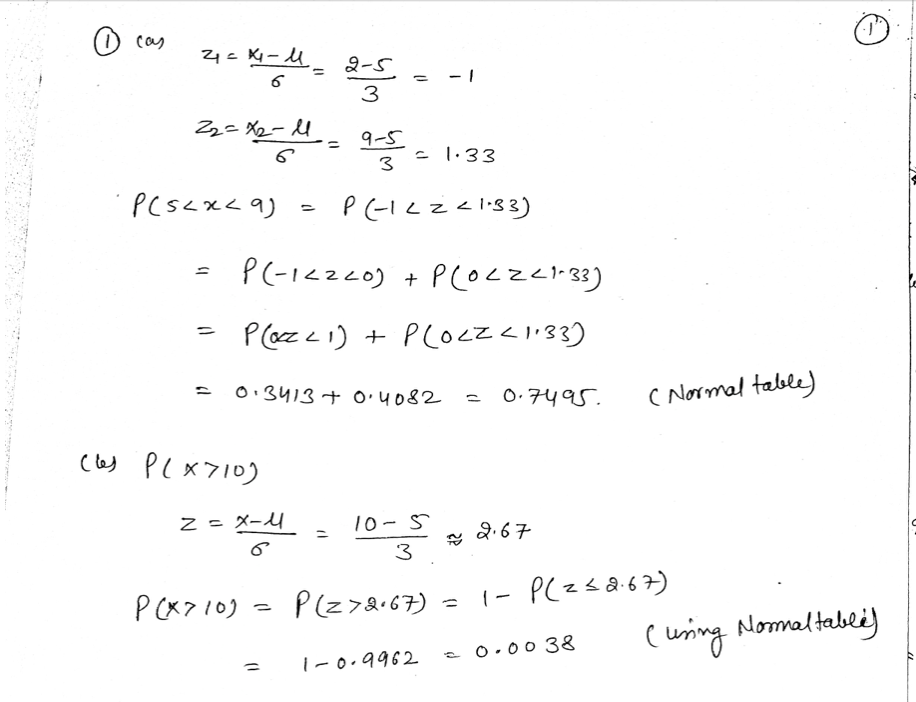 ① (a) z₁ = x₁-μ/σ = 2-5/3 = -1 ①
z₂ = x₂-μ/σ = 9-5/3 = 1.33
P(5<x<9) = P(-1<z<1.33)
= P(-1<z<0) + P(0<z<1.33)
= P(0<z<1) + P(0<z<1.33)
= 0.3413 + 0.4082 = 0.7495. (Normal table)
(b) P(x>10)
z = x-μ/σ = 10-5/3 ≈ 2.67
P(x>10) = P(z>2.67) = 1-P(z≤2.67)
= 1-0.9962 = 0.0038 (using Normal tables)